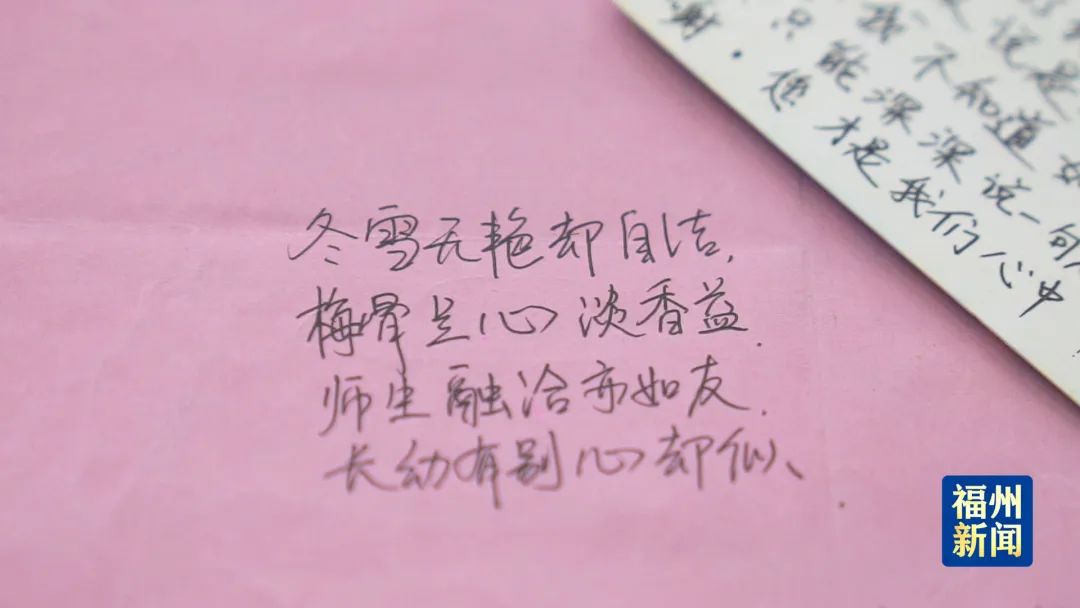 冬雪无艳却自洁,
梅骨是心淡香益.
师生融洽亦如友.
长幼有别心却似、
说是
我不知道如
谢.只能深深说一句
您才是我们心中
福州
新闻